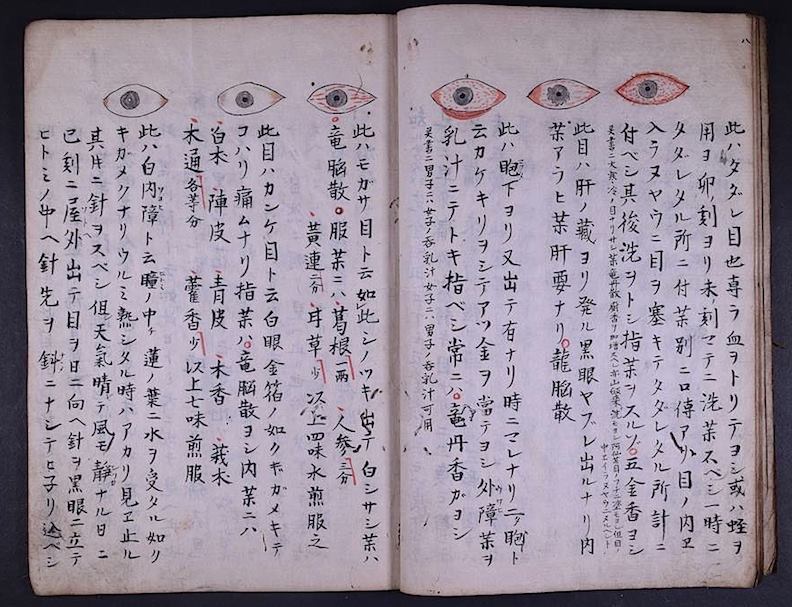 八
此ハタダレ目也專ラ血ヲトリテヨシ或ハ蛭ヲ
用ヲ卯ノ刻ヨリ未ノ刻マテニ洗薬スベシ一時ニ
タダレタル所ニ付薬別ニ口傳アリ目ノ内エ
入ラヌヤウニ目ヲ塞キテタダレタル所計ニ
付ベシ其後洗ヲトシ指薬ヲスルゾ五金香ヨシ
此目ハ肝ノ藏ヨリ発ル黒眼ヤブレ出ルナリ内
薬アラヒ薬肝要ナリ龍脳散
此ハ胞下ヨリ又出テ有ナリ時ニマレナリ二ツ胞ト
云カケキリヲシテアツ金ヲ當テヨシ外障薬ヲ
乳汁ニテトキ指ベシ常ニハ竜丹香ガヨシ
薬書ニ男子ニハ女子ノ呑乳汁女子ニハ男子ノ呑乳汁可用
此ハモガサ目ト云如此シノツキ出テ白シサシ薬ハ
竜脳散 服薬ニハ 葛根一両 人参三分
黄連二分 甘草少 以上四味水煎服之
此目ハカンケ目ト云白眼金箔ノ如クキガメキテ
コハリ痛ムナリ指薬ハ竜脳散ヨシ内薬ニハ
白朮 陣皮 青皮 木香 莪朮
木通各等分 藿香少 以上七味煎服
此ハ白内障ト云瞳ノ中ヶ蓮ノ葉ニ水ヲ受タル如ク
キガメクナリウルミ熱シタル時ハアカリ見ヱ止ル
其片ニ針ヲスベシ但天氣晴テ風モ静ナル日ニ
巳刻ニ屋外出テ目ヲ日ニ向ヘ針ヲ黒眼ニ立テ
ヒトミノ中ヘ針先ヲ斜ニナシテヒ子リ込ベシ